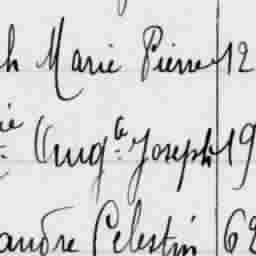 h Marie Pierre 12
ie Aug.te Joseph 19
andre Celestin 62